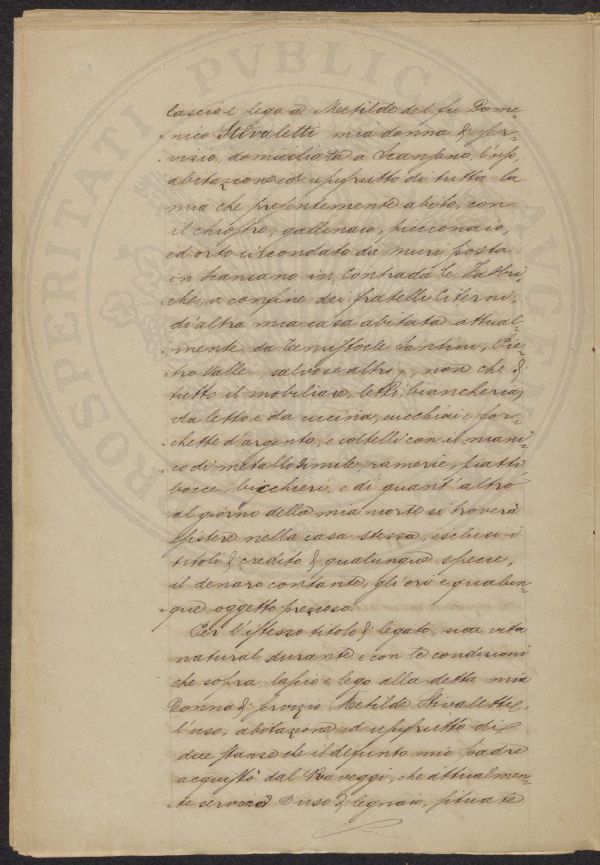 PROSPERITATI PVBLICAE AVGEN
lascio e lego a Metilde del fu Dome
nico Stivaletti mia donna di ser-
vizio domiciliata a Scansano, l'uso,
abitazione ed usufrutto di tutta la
mia che presentemente abito, con
il chiostro, gallinaio, piccionaio,
ed orto circondato da muri, posta
in Scansano in Contrada le Fabbri
che, a confine dei fratelli Citerni,
di altra mia casa abitata attual-
mente da Temistocle Santini, Pie-
tro Valle, salvo se altri, non che di
tutto il mobiliare, letti, biancheria,
da letto e da cucina, cucchiai e for-
chette d'argento, e coltelli con il mani-
co di metallo simile, ramerie, piatti
bocce, bicchieri, e di quant'altro
al giorno della mia morte si troverà
esistere nella casa stessa, esclusi i
titoli di credito di qualunque specie,
il denaro contante, gli ori e qualun-
que oggetto prezioso.
Per l'istesso titolo di legato, sua vita
natural durante e con le condizioni
che sopra lascio e lego alla detta mia
Donna di servizio Metilde Stivaletti,
l'uso, abitazione ed usufrutto di
due stanze che il defunto mio padre
acquistò dal Raveggi, che attualmen-
te servono d'uso di legnaio, situate